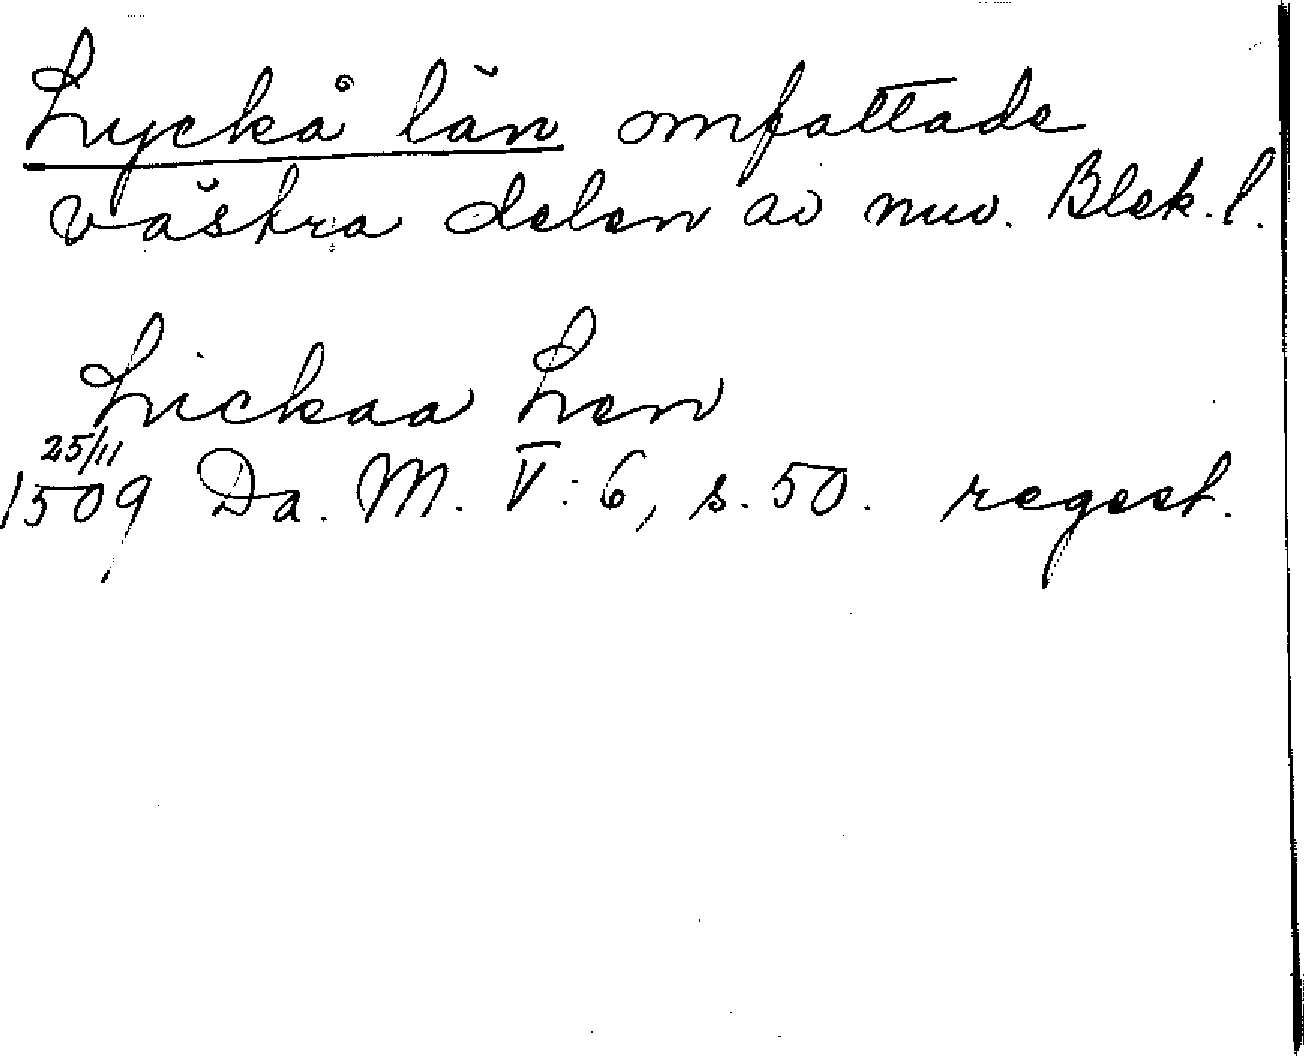 Lyckå län omfattade
västra delen av nuv. Blek. l.
Lickaa Len
25/11
1509 Da. M. V: 6, s. 50. regest.